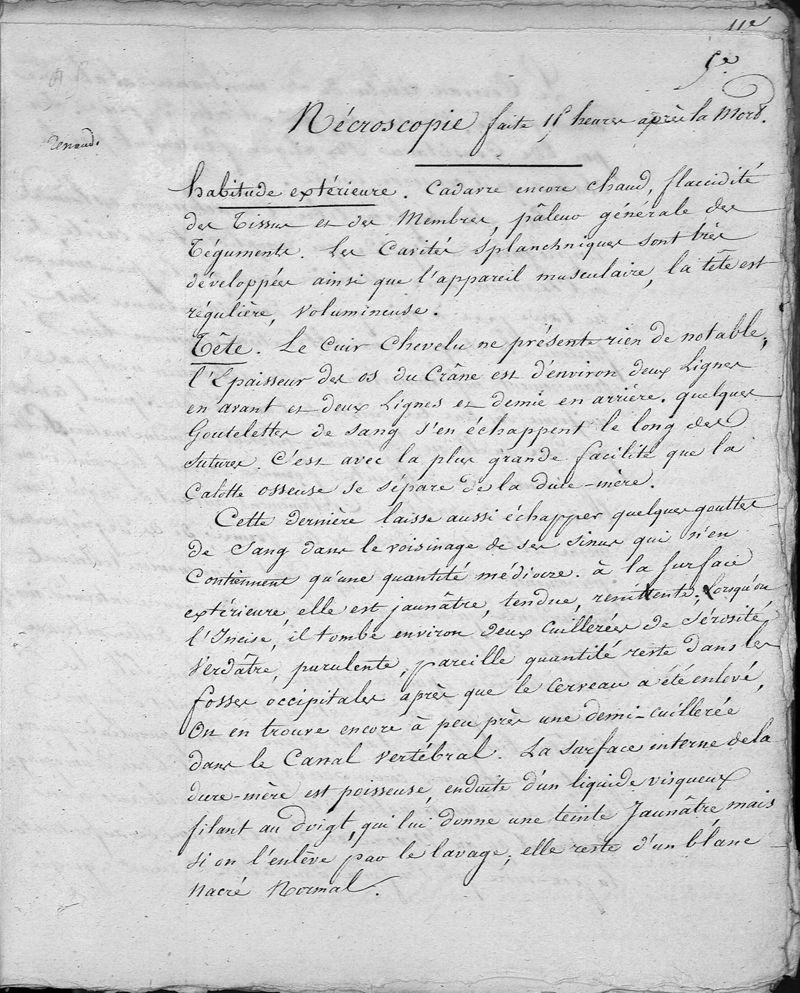 11e
5e
Nécroscopie faite 15 heures après la Mort.
Renaud.
habitude extérieure. Cadavre encore chaud, flaccidité
des Tissus et des Membres, pâleur générale des
Téguments. Les Cavités Splanchniques sont très
développées ainsi que l'appareil musculaire, la tête est
régulière, volumineuse.
Tête. Le Cuir Chevelu ne présente rien de notable,
l'Epaisseur des os du Crâne est d'environ deux Lignes
en avant et deux Lignes et demie en arrière. quelques
Goutelettes de sang s'en échappent le long des
sutures. C'est avec la plus grande facilité que la
Calotte osseuse se sépare de la dure-mère.
Cette dernière laisse aussi échapper quelques gouttes
de Sang dans le voisinage de ses sinus qui n'en
Contiennent qu'une quantité médiocre. à la surface
extérieure elle est jaunâtre, tendue, remittente; Lorsqu'on
l'Incise, il tombe environ deux Cuillerées de Sérosité
Verdâtre, purulente, pareille quantité reste dans les
fosses occipitales après que le Cerveau a été enlevé,
On en trouve encore à peu près une demi-cuillerée
dans le Canal Vertébral. La surface interne de la
dure-mère est poisseuse, enduite d'un liquide visqueux
filant au doigt, qui lui donne une teinte Jaunâtre mais
si on l'enlève par le lavage, elle reste d'un blanc
Nacré Normal.